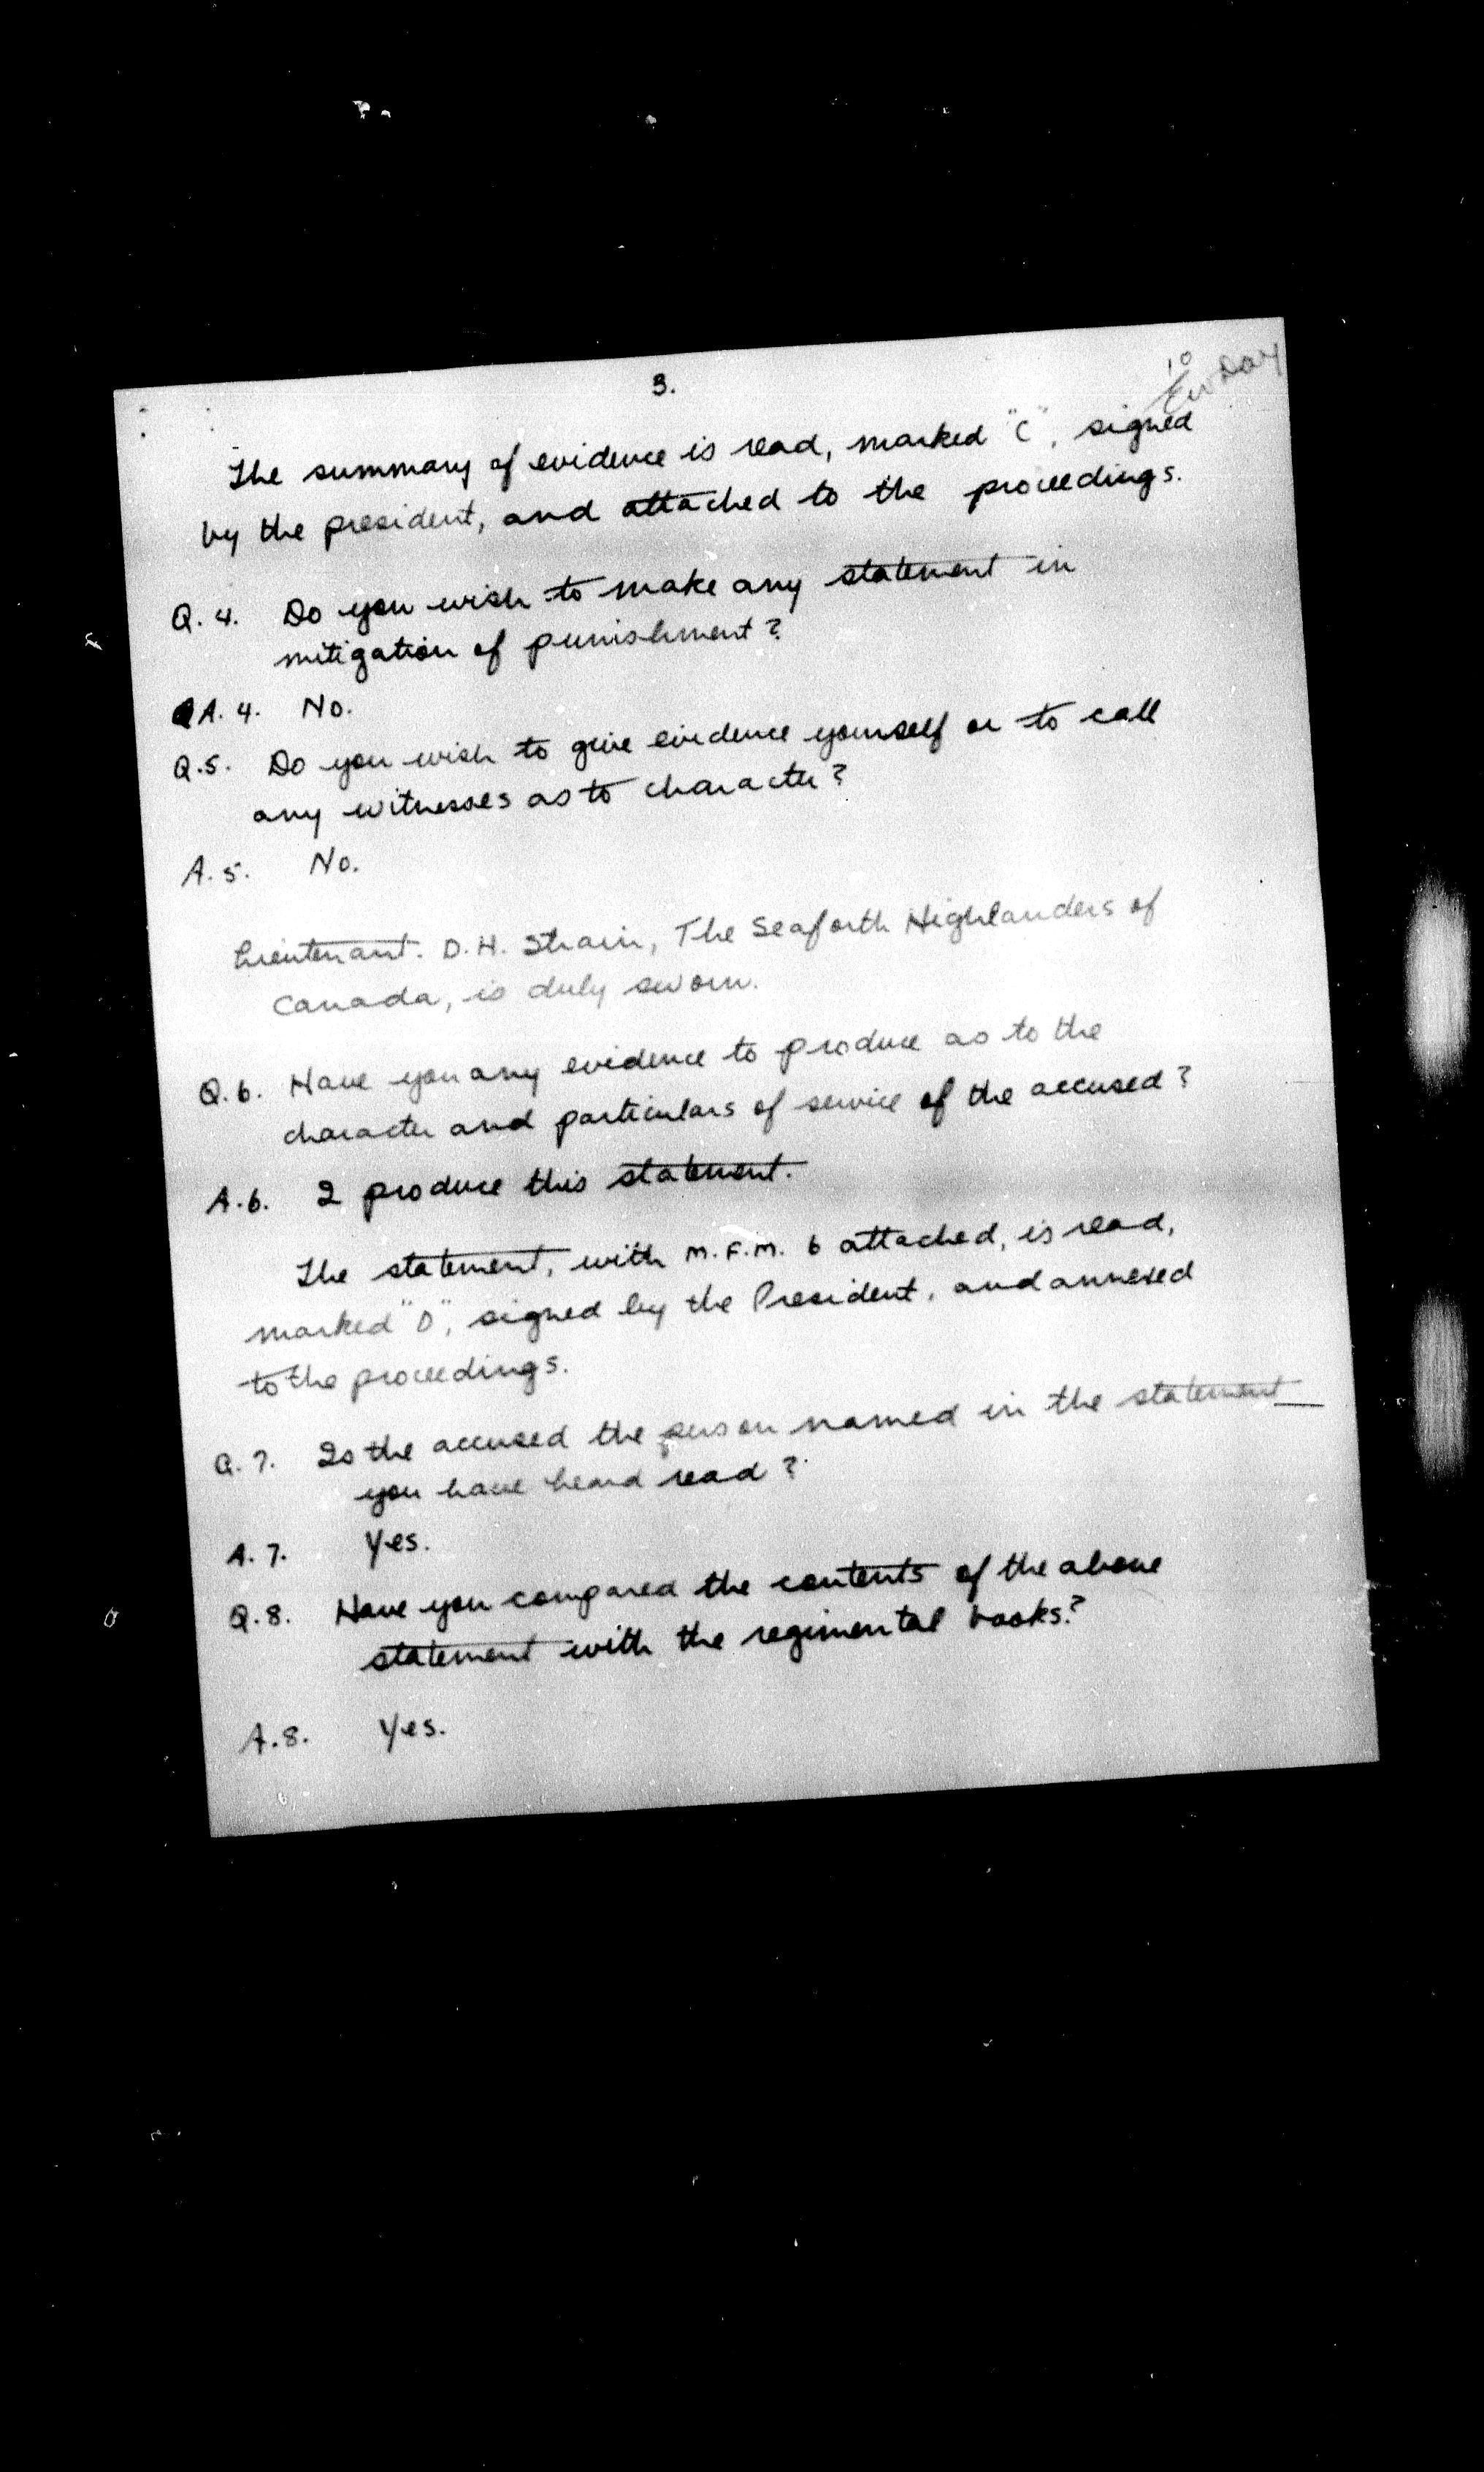 3.
10
The summary of evidence is read, marked "C", signed
by the president, and attached to the proceedings.
Q. 4. Do you wish to make any statement in
mitigation of punishment?
A. 4. No.
Q. 5. Do you wish to give evidence yourself or to call
any witnesses as to character?
A. 5. No.
Lieutenant. D. H. Strain, The Seaforth Highlanders of
Canada, is duly sworn.
Q. 6. Have you any evidence to produce as to the
character and particulars of service of the accused?
A. 6. I produce this statement.
The statement, with M.F.M. 6 attached, is read,
marked "D", signed by the President, and annexed
to the proceedings.
Q. 7. Is the accused the person named in the statement
you have heard read?
A. 7. Yes.
Q. 8. Have you compared the contents of the above
statement with the regimental books?
A. 8. Yes.